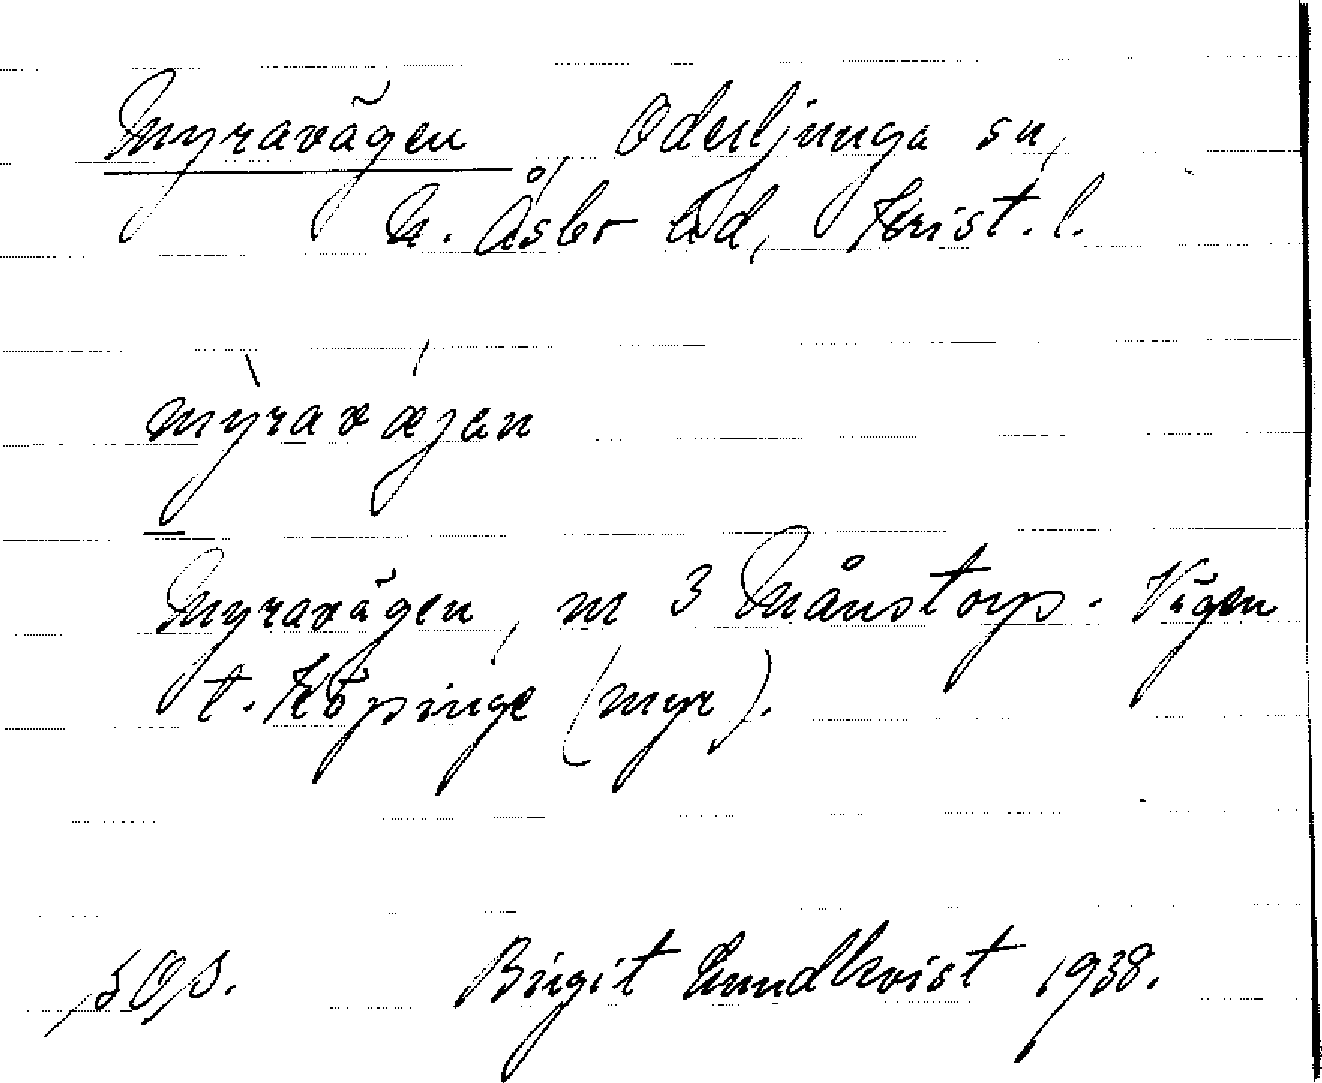 Myravägen, Oderljunga sn,
N. Åsbo hd, Krist. l.
mỳravǽjen
Myravägen, m 3 Månstorp. Vägen
t. Köpinge (myr).
Birgit Lundkvist 1938.